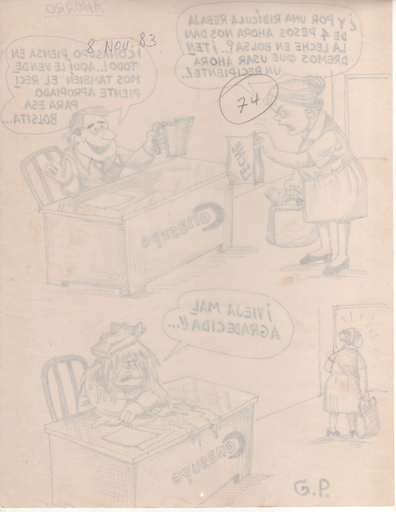 AHORRO
8. NOV. 83.
¿Y POR UNA RIDÍCULA REBAJA
DE 4 PESOS AHORA NOS DAN
LA LECHE EN BOLSA?. ¡TEN
DREMOS QUE USAR AHORA
UN RECIPIENTE!.
¡CONASUPO PIENSA EN
TODO!.. ¡AQUÍ LE VENDE
MOS TAMBIÉN EL RECI
PIENTE APROPIADO
PARA ESA
BOLSITA...
74
LECHE
Conasupo
¡VIEJA MAL
AGRADECIDA!!...
Conasupo
G.P.